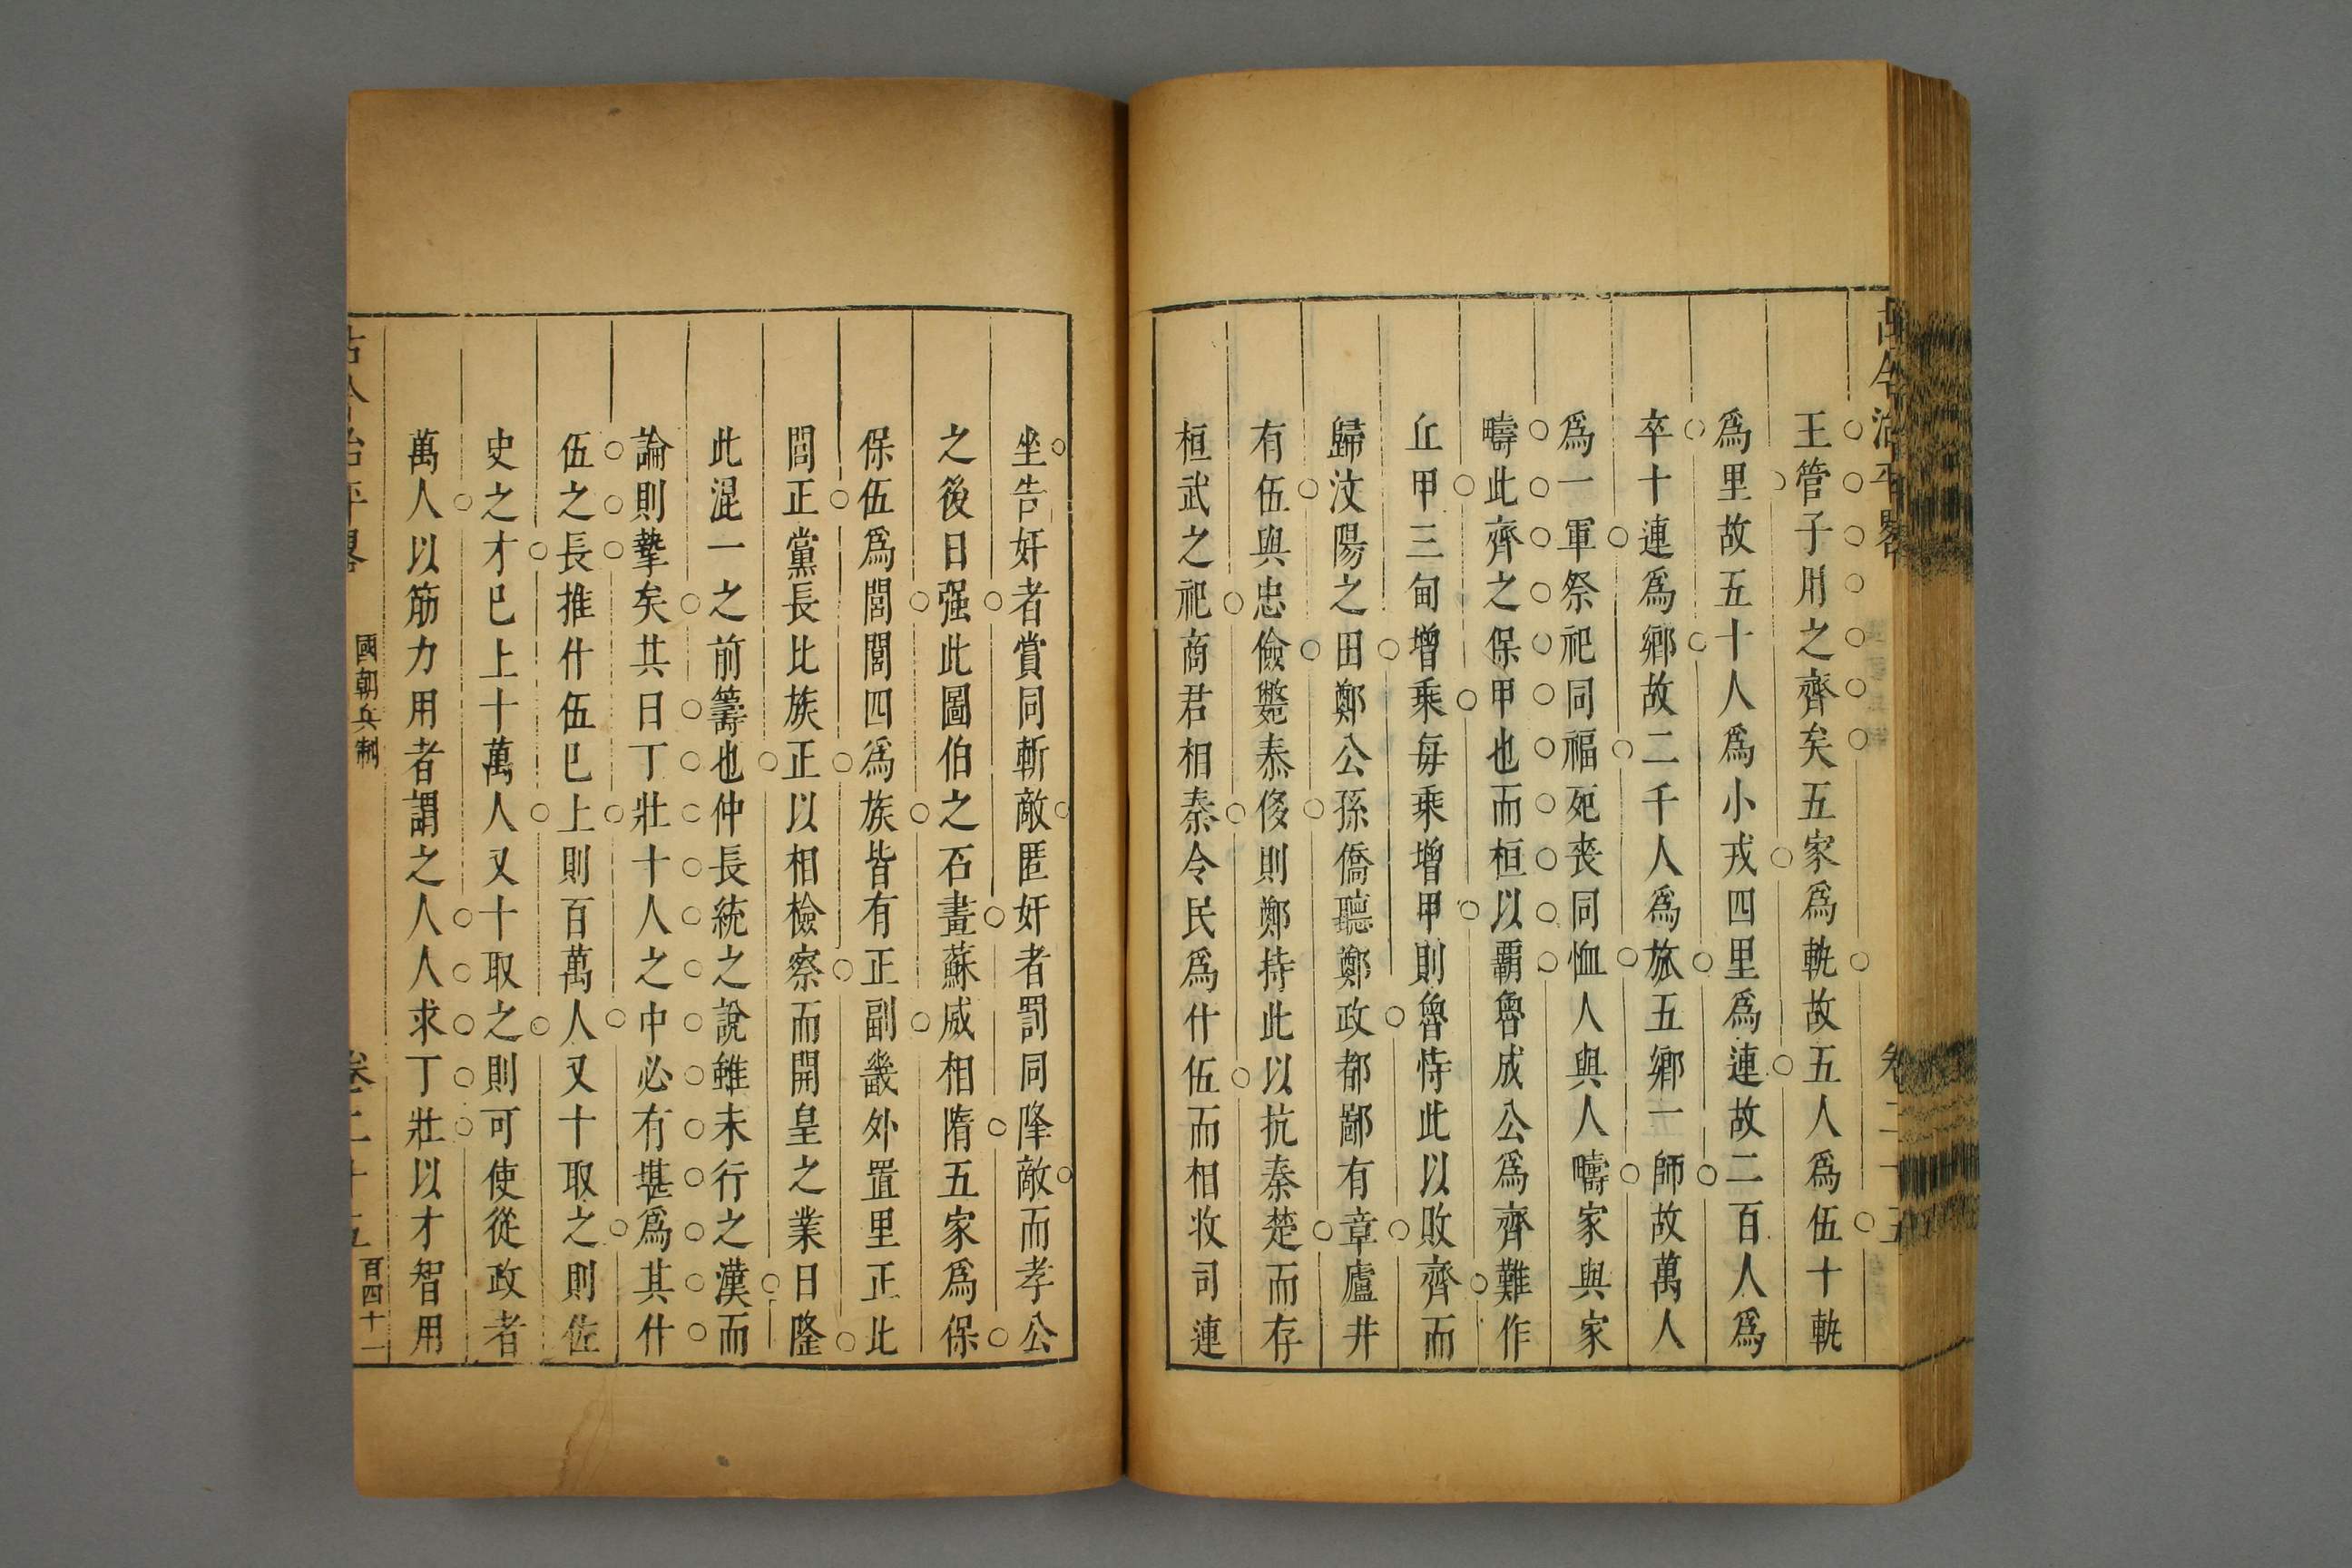 古今治平畧 卷二十五
王管子用之齊矣五家爲軌故五人爲伍十軌
爲里故五十人爲小戎四里爲連故二百人爲
卒十連爲鄉故二千人爲旅五鄉一師故萬人
爲一軍祭祀同福死喪同恤人與人疇家與家
疇此齊之保甲也而桓以覇魯成公爲齊難作
丘甲三甸增乘每乘增甲則魯恃此以敗齊而
歸汶陽之田鄭公孫僑聽鄭政都鄙有章廬井
有伍與忠儉斃泰侈則鄭持此以抗秦楚而存
桓武之祀商君相秦令民爲什伍而相收司連
坐告奸者賞同斬敵匿奸者罰同降敵而孝公
之後日强此圖伯之石畫蘇威相隋五家爲保
保伍爲閭閭四爲族皆有正副畿外置里正比
閭正黨長比族正以相檢察而開皇之業日隆
此混一之前籌也仲長統之說雖未行之漢而
論則摯矣其曰丁壯十人之中必有堪爲其什
伍之長推什伍已上則百萬人又十取之則佐
史之才已上十萬人又十取之則可使從政者
萬人以筋力用者謂之人人求丁壯以才智用
古今治平畧 國朝兵制 卷二十五 百四十一